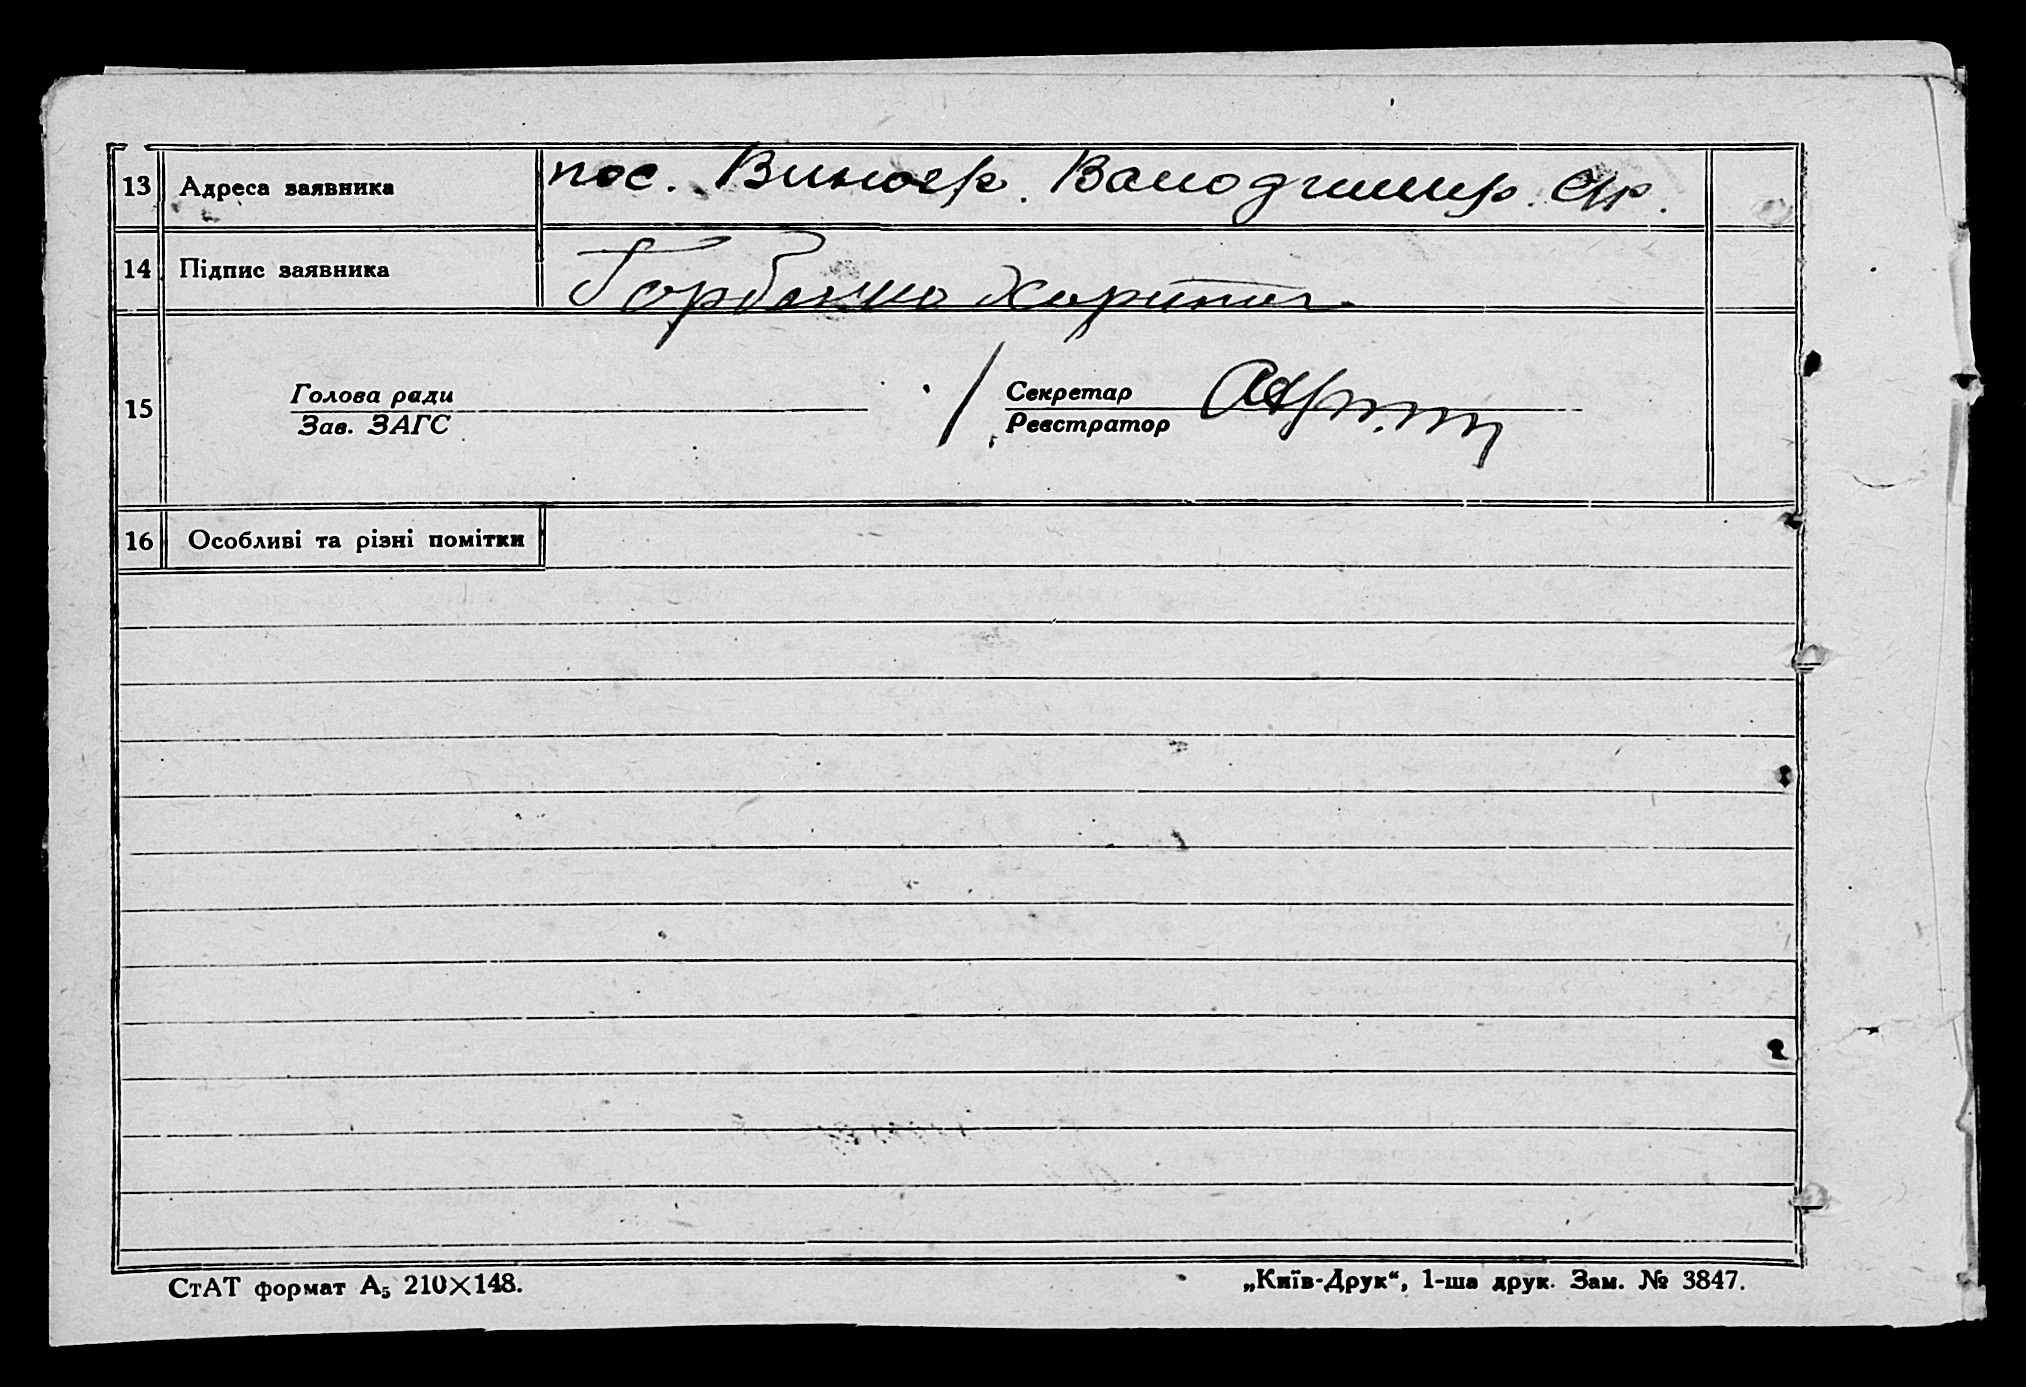 13 Адреса заявника пос. Виногр. Володимир. с/р.
14 Підпис заявника Горбенко Харитон
15 Голова ради Секретар
Зав. ЗАГС Реєстратор
16 Особливі та різні помітки
СтАТ формат А₅ 210×148.
„Київ-Друк“, 1-ша друк. Зам. № 3847.